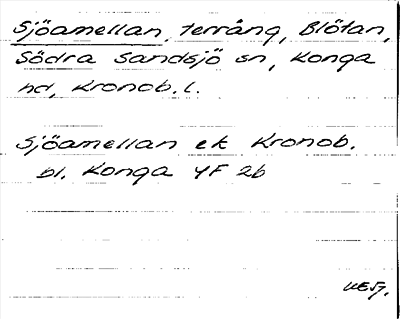 Sjöamellan, terräng, Blötan,
Södra Sandsjö sn, Konga
hd, Kronob. l.
Sjöamellan ek Kronob.
bl. Konga YF 2b